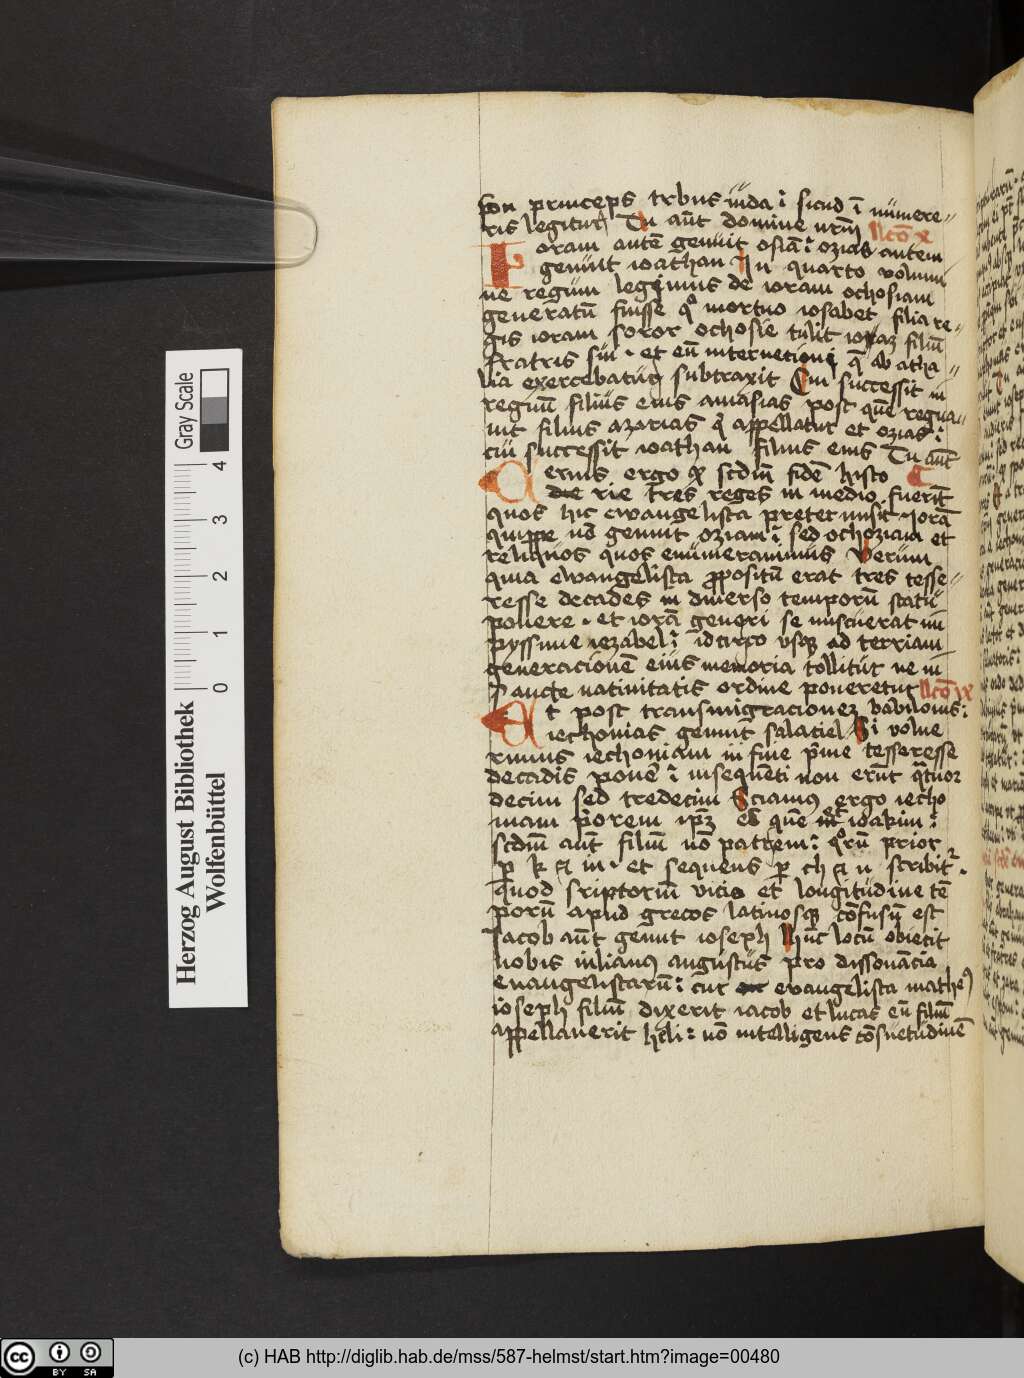 son princeps tr̄bus iuda ⁊ sicud ī numere-
ris legitur Tu aūt domine nr̄m lcō x
Ioram autē genuit osiā: ozias autem
genuit ioathan In quarto volumi-
ne regum legimus de ioram ochosiam
generatū fuisse qͦ mortuo iosabet filia re-
gis ioram soror ochosie tulit ioaz filiū
fratris sui · et eū internetioni q̄ ab atha-
lia exercebatur subtraxit Cui successit in
regnū filius eius amasias post quē regna-
uit filius azarias qͥ appellatur et ozias:
cui successit ioathan filius eius Tu aūt
Cernis ergo qͦ scdm̄ fidē histo
rie tres reges in medio fuerīt
quos hic ewangelista pretermisit iorā
quippe nō genuit oziam: sed ochoziam et
reliquos quos enumerauimus Verum
quia ewangelista ꝓpositū erat tres tesse-
resse decades in diuerso temporū statu
ponere · et iorā generi se miscuerat im
pyssime iezabel: idcirco vsqꝫ ad terciam
generacionē eius memoria tollitur ne in
sancte natiuitatis ordine poneretur lcō ix
Et post transmigracionez babilonis:
iechonias genuit salatiel Si volue
rimus iechoniam in fine p̄me tesseresse
decadis ponē: in sequēti non erūt qͣtuor
decim sed tredecim Sciamꝰ ergo iecho
niam
scdm̄ aūt filiū nō patrem: qͦrū prior
p k ⁊ m · et sequens p ch ⁊ n scribitᷣ.
quod sriptorum vicio et longitudine tē
porū apud grecos latinosqꝫ cōfusū est
Iacob aūt genuit ioseph Hūc locū obiecit
nobis iulianꝰ augustus pro dissonācia
euangelistarū: cur evangelista matheꝰ
ioseph filiū dixerit iacob et lucas eū filiū
appellauerit heli: nō intelligens cōsuetudinē
Herzog August Bibliothek
Wolfenbüttel
0 1 2 3 4
Gray Scale
cc BY SA
(c) HAB http://diglib.hab.de/mss/587-helmst/start.htm?image=00480